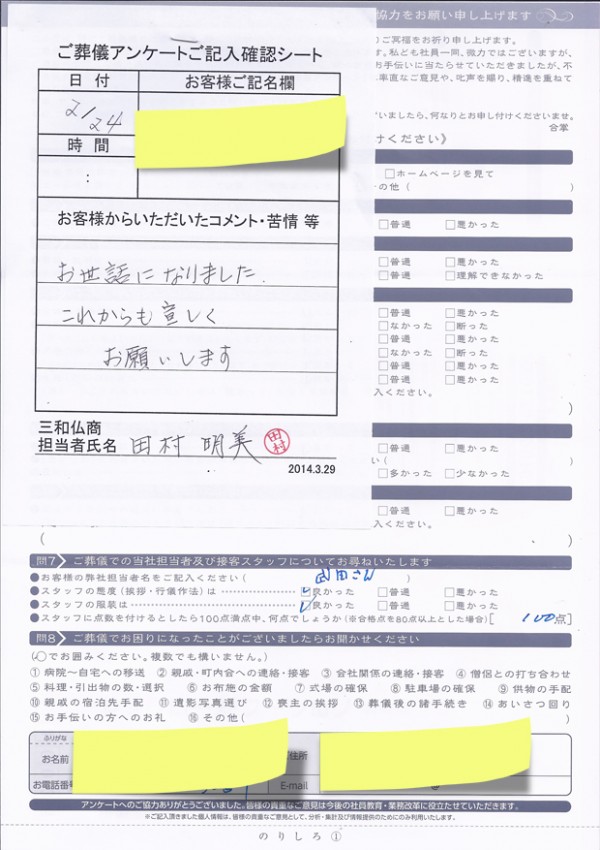 協力をお願い申し上げます
ご葬儀アンケートご記入確認シート
日付
お客様ご記名欄
2/24
時間
:
お客様からいただいたコメント・苦情 等
お世話になりました.
これからも宜しく
お願いします
三和仏商
担当者氏名 田村 明美
田村
2014.3.29
のご冥福をお祈り申します。
す。私ども社員一同、微力ではございますが、
お手伝いに当たらせていただきましたが、不
率直なご意見や、叱声を賜り、精進を重ねて
いましたら、何なりとお申し付けくださいませ。
合掌
けください》
□ホームページを見て
の他( )
□普通 □悪かった
□普通 □悪かった
□普通 □理解できなかった
□普通 □悪かった
□なかった □断った
□普通 □悪かった
□なかった □断った
□普通 □悪かった
□普通 □悪かった
入ください。
)
□普通 □悪かった
い( )
□多かった □少なかった
□普通 □悪かった
入ください。
( )
問7 ご葬儀での当社担当者及び接客スタッフについてお尋ねいたします
●お客様の弊社担当者名をご記入ください( 武田さん )
●スタッフの態度(挨拶・行儀作法)は ☑良かった □普通 □悪かった
●スタッフの服装は ☑良かった □普通 □悪かった
●スタッフに点数を付けるとしたら100点満点中、何点でしょうか(※合格点を80点以上とした場合)[ 100点]
問8 ご葬儀でお困りになったことがございましたらお聞かせください
(○でお囲みください。複数でも構いません。)
①病院〜自宅への移送 ②親戚・町内会への連絡・接客 ③会社関係の連絡・接客 ④僧侶との打ち合わせ
⑤料理・引出物の数・選択 ⑥お布施の金額 ⑦式場の確保 ⑧駐車場の確保 ⑨供物の手配
⑩親戚の宿泊先手配 ⑪遺影写真選び ⑫喪主の挨拶 ⑬葬儀後の諸手続き ⑭あいさつ回り
⑮お手伝いの方へのお礼 ⑯その他( )
ふりがな
お名前
ご住所
お電話番号
E-mail
アンケートへのご協力ありがとうございました。皆様の貴重なご意見は今後の社員教育・業務改革に役立たせていただきます。
※ご記入頂きました個人情報は、皆様の貴重なご意見として、分析・集計及び情報提供のためにのみ利用いたします。
のりしろ①